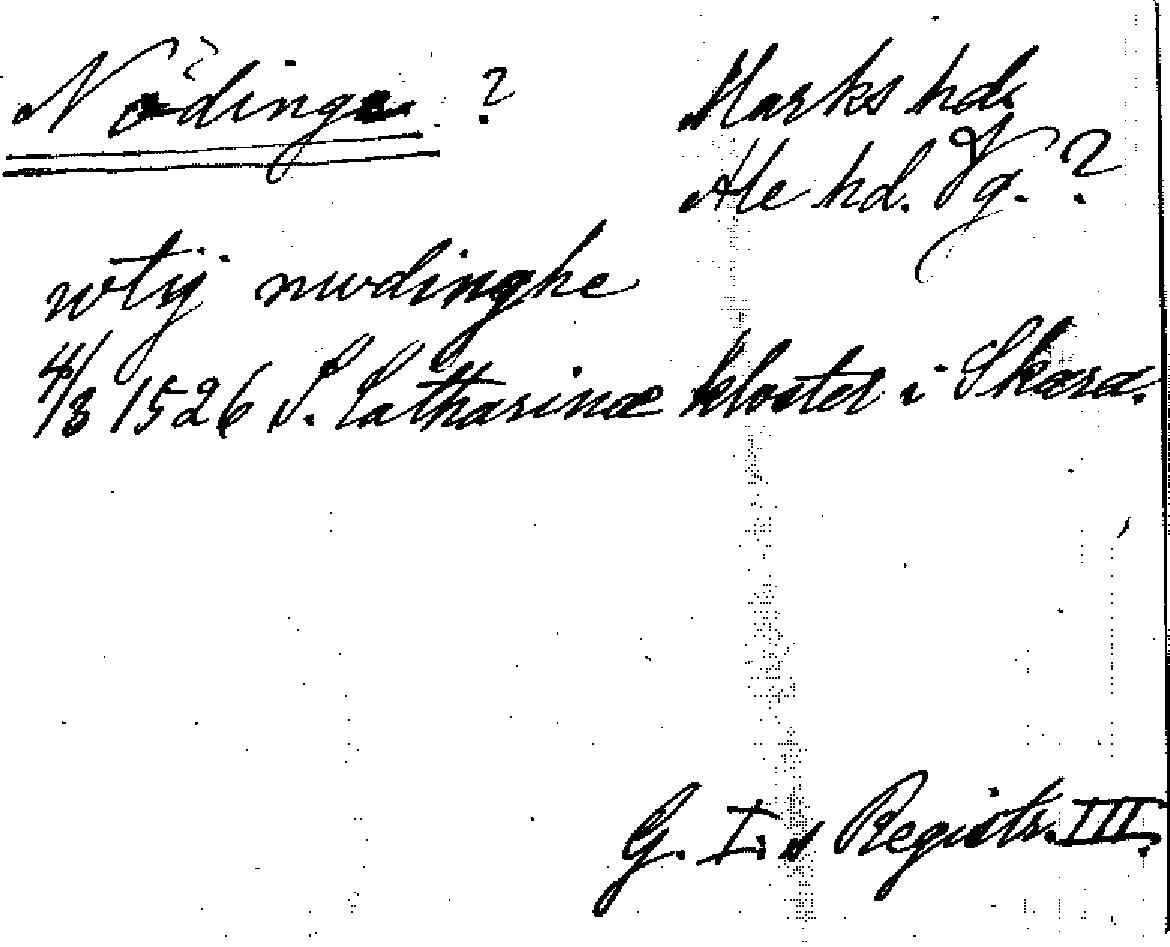 Nödinge ? Marks hd.
Ale hd. Vg. ?
wtij nwdinghe
4/3 1526 S. Catharinæ kloster i Skara.
G. I:s Registr. III.